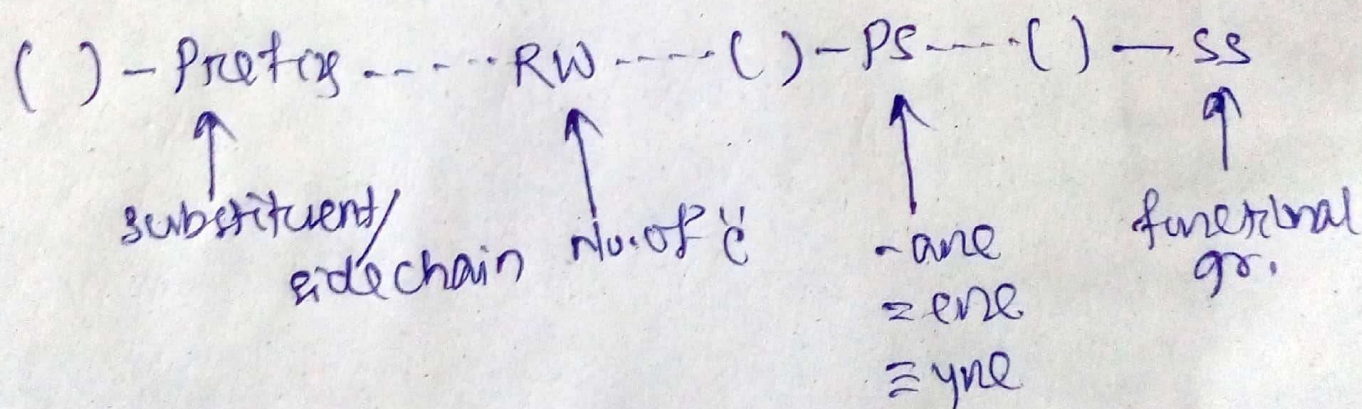 ( ) - Prefix ------ RW ----- ( ) - PS ----- ( ) — SS
substituent/
sidechain
No. of c̈
- ane
= ene
≡ yne
functional
gr.